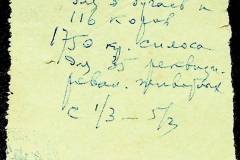 для 3 бугаев и
116 коров
1750 кг. силоса
для 35 реквизи.
рован. животных
с 1/3 – 5/3